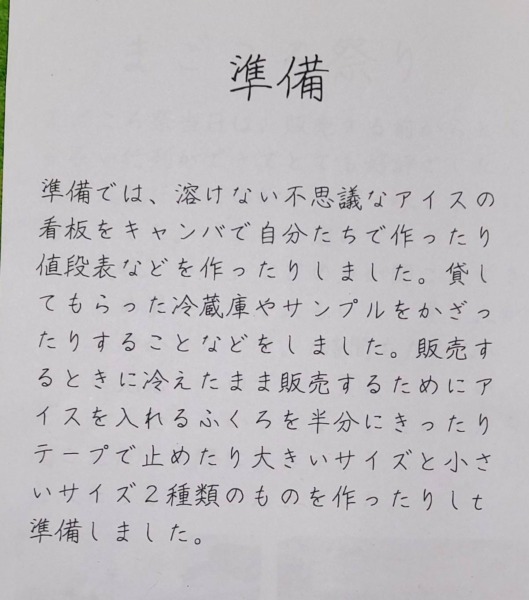 準備
準備では、溶けない不思議なアイスの
看板をキャンバで自分たちで作ったり
値段表などを作ったりしました。貸し
てもらった冷蔵庫やサンプルをかざっ
たりすることなどをしました。販売す
るときに冷えたまま販売するためにア
イスを入れるふくろを半分にきったり
テープで止めたり大きいサイズと小さ
いサイズ2種類のものを作ったりして
準備しました。